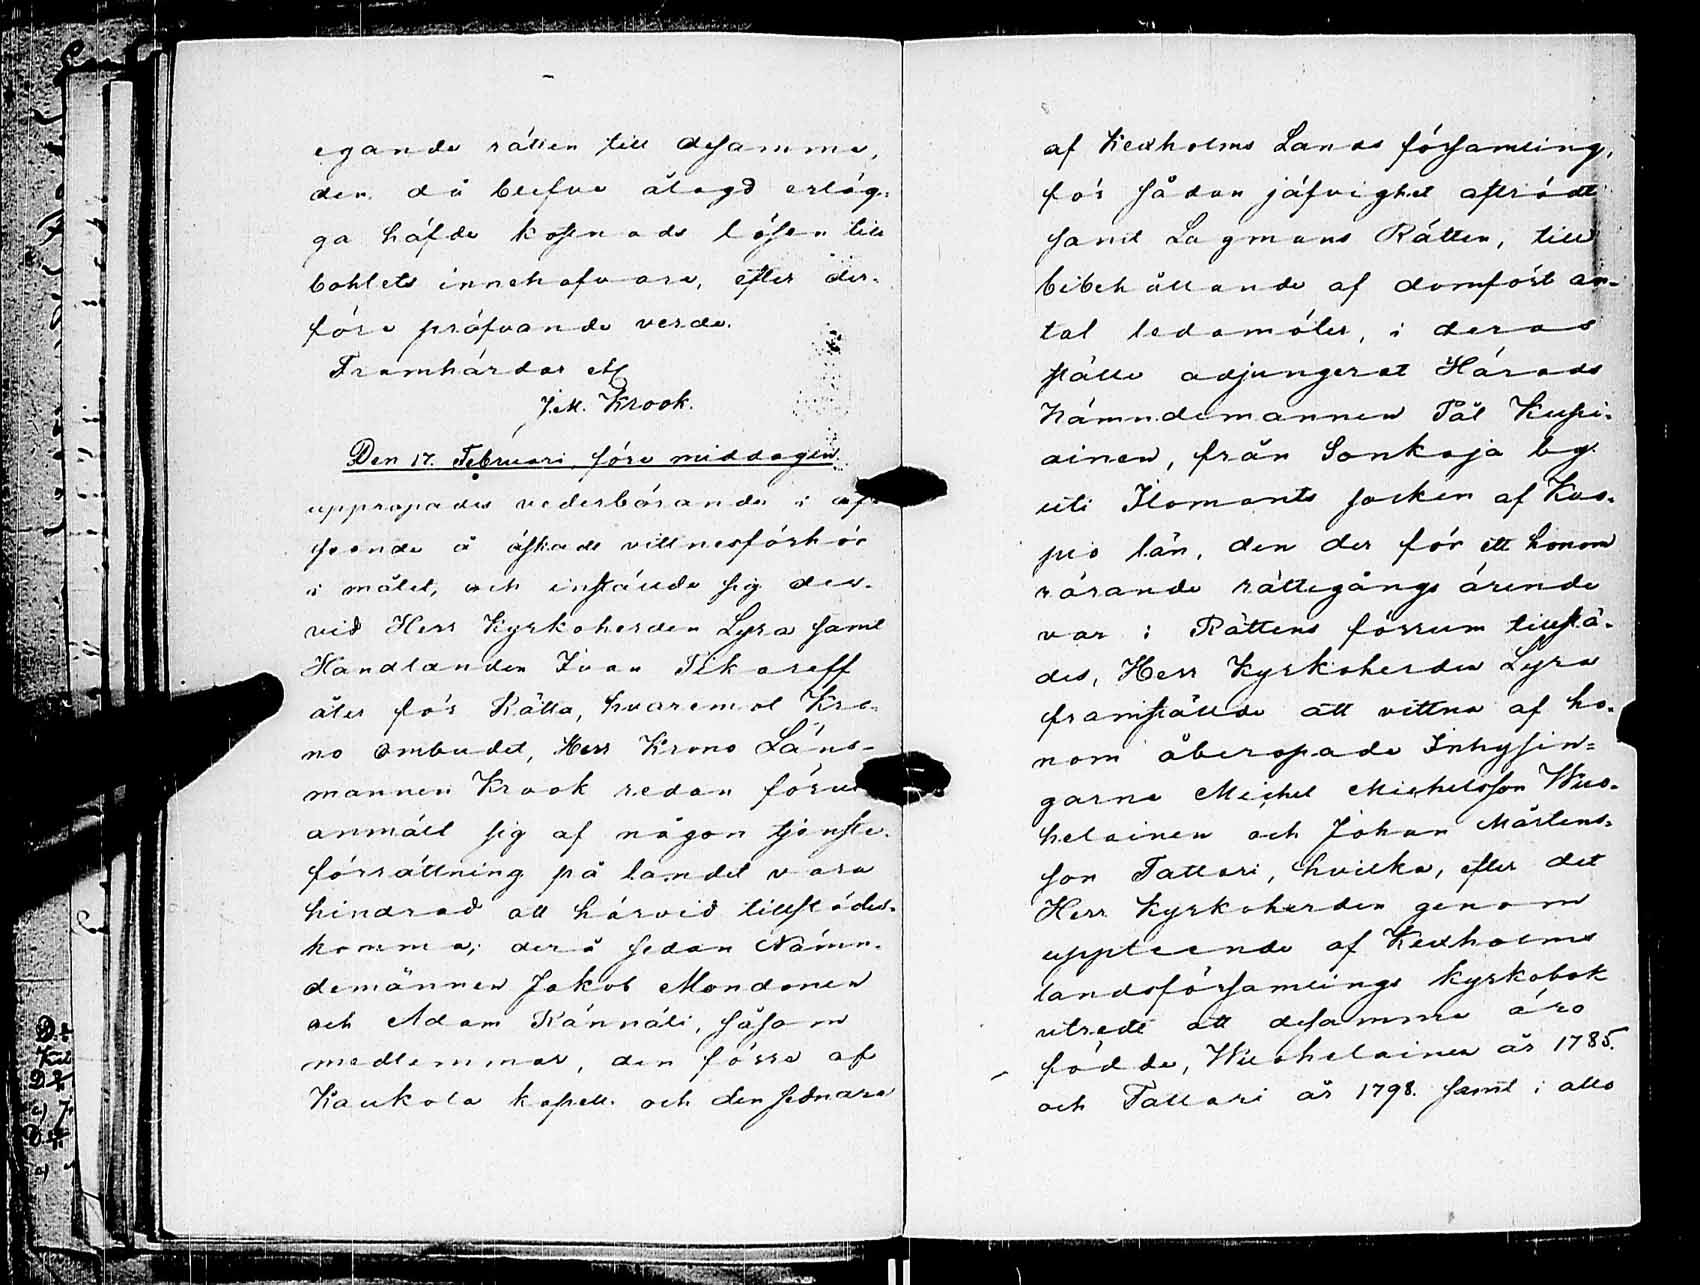 egande rätten till desamma,
den då blefve ålagd erläg-
ga häfde kostnads lösen till
bohlets innehafvare, efter der-
före pröfvande verde.
Framhärdar etc
J.M. Krook.
Den 17. Februari, före middagen
uppropades vederbörande i af-
seende å äskadt vittnesförhör
i målet, och instälde sig der-
vid Herr Kyrkoherden Lyra samt
Handlanden Ivan Tikareff
åter för Rätta, hvaremot Kro-
no ombudet, Herr Krono Läns-
mannen Krook redan förut
anmält sig af någon tjenste-
förrättning på landet vara
hindrad att härvid tillstädes-
komma; derå sedan Näm-
demännen Jakob Mondonen
och Adam Rännäli, såsom
medlemmar, den förre af
Kaukola kapell och den sednare
af Kexholms Lands församling,
för sådan jäfvighet afträdt
samt Lagmans Rätten, till
bibehållande af domfört an-
tal ledamöter, i deras
ställe adjungerat Härads
Nämndemannen Pål Kupi-
ainen, från Sonkaja by
uti Ilomants socken af Kuo-
pio län, den der för ett honom
rörande rättegångs ärende
var i Rättens förrum tillstä-
des, Herr Kyrkoherden Lyra
framstälde att vittna af ho-
nom åberopade Inhysin-
garne Michel Michelsson Wuo-
helainen och Johan Mårtens-
son Tattari, hvilka, efter det
Herr Kyrkoherden genom
uppteende af Kexholms
landsförsamlings kyrkobok
utredt att desamma äro
födde, Wuohelainen år 1785.
och Tattari år 1798. samt i allo